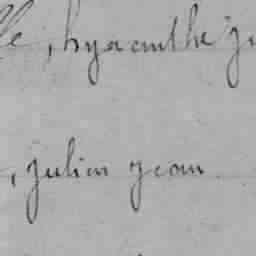 , hyacinthe
, julien jean